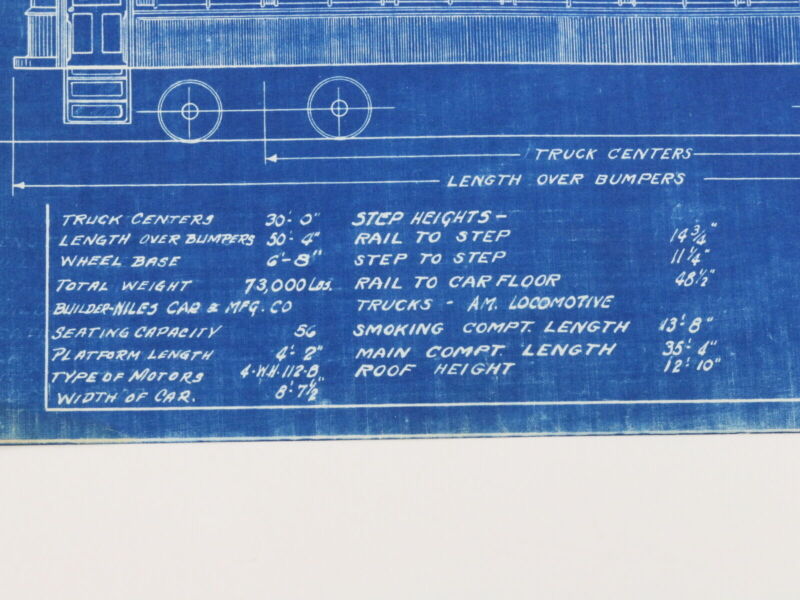 TRUCK CENTERS
LENGTH OVER BUMPERS
TRUCK CENTERS 30'-0"
LENGTH OVER BUMPERS 50'-4"
WHEEL BASE 6'-8"
TOTAL WEIGHT 73,000 LBS.
BUILDER-NILES CAR & MFG. CO
SEATING CAPACITY 56
PLATFORM LENGTH 4'-2"
TYPE OF MOTORS 4-W.H. 112-B
WIDTH OF CAR. 8'-7½"
STEP HEIGHTS-
RAIL TO STEP 14¾"
STEP TO STEP 11¼"
RAIL TO CAR FLOOR 48½"
TRUCKS - AM. LOCOMOTIVE
SMOKING COMPT. LENGTH 13'-8"
MAIN COMPT. LENGTH 35'-4"
ROOF HEIGHT 12'-10"